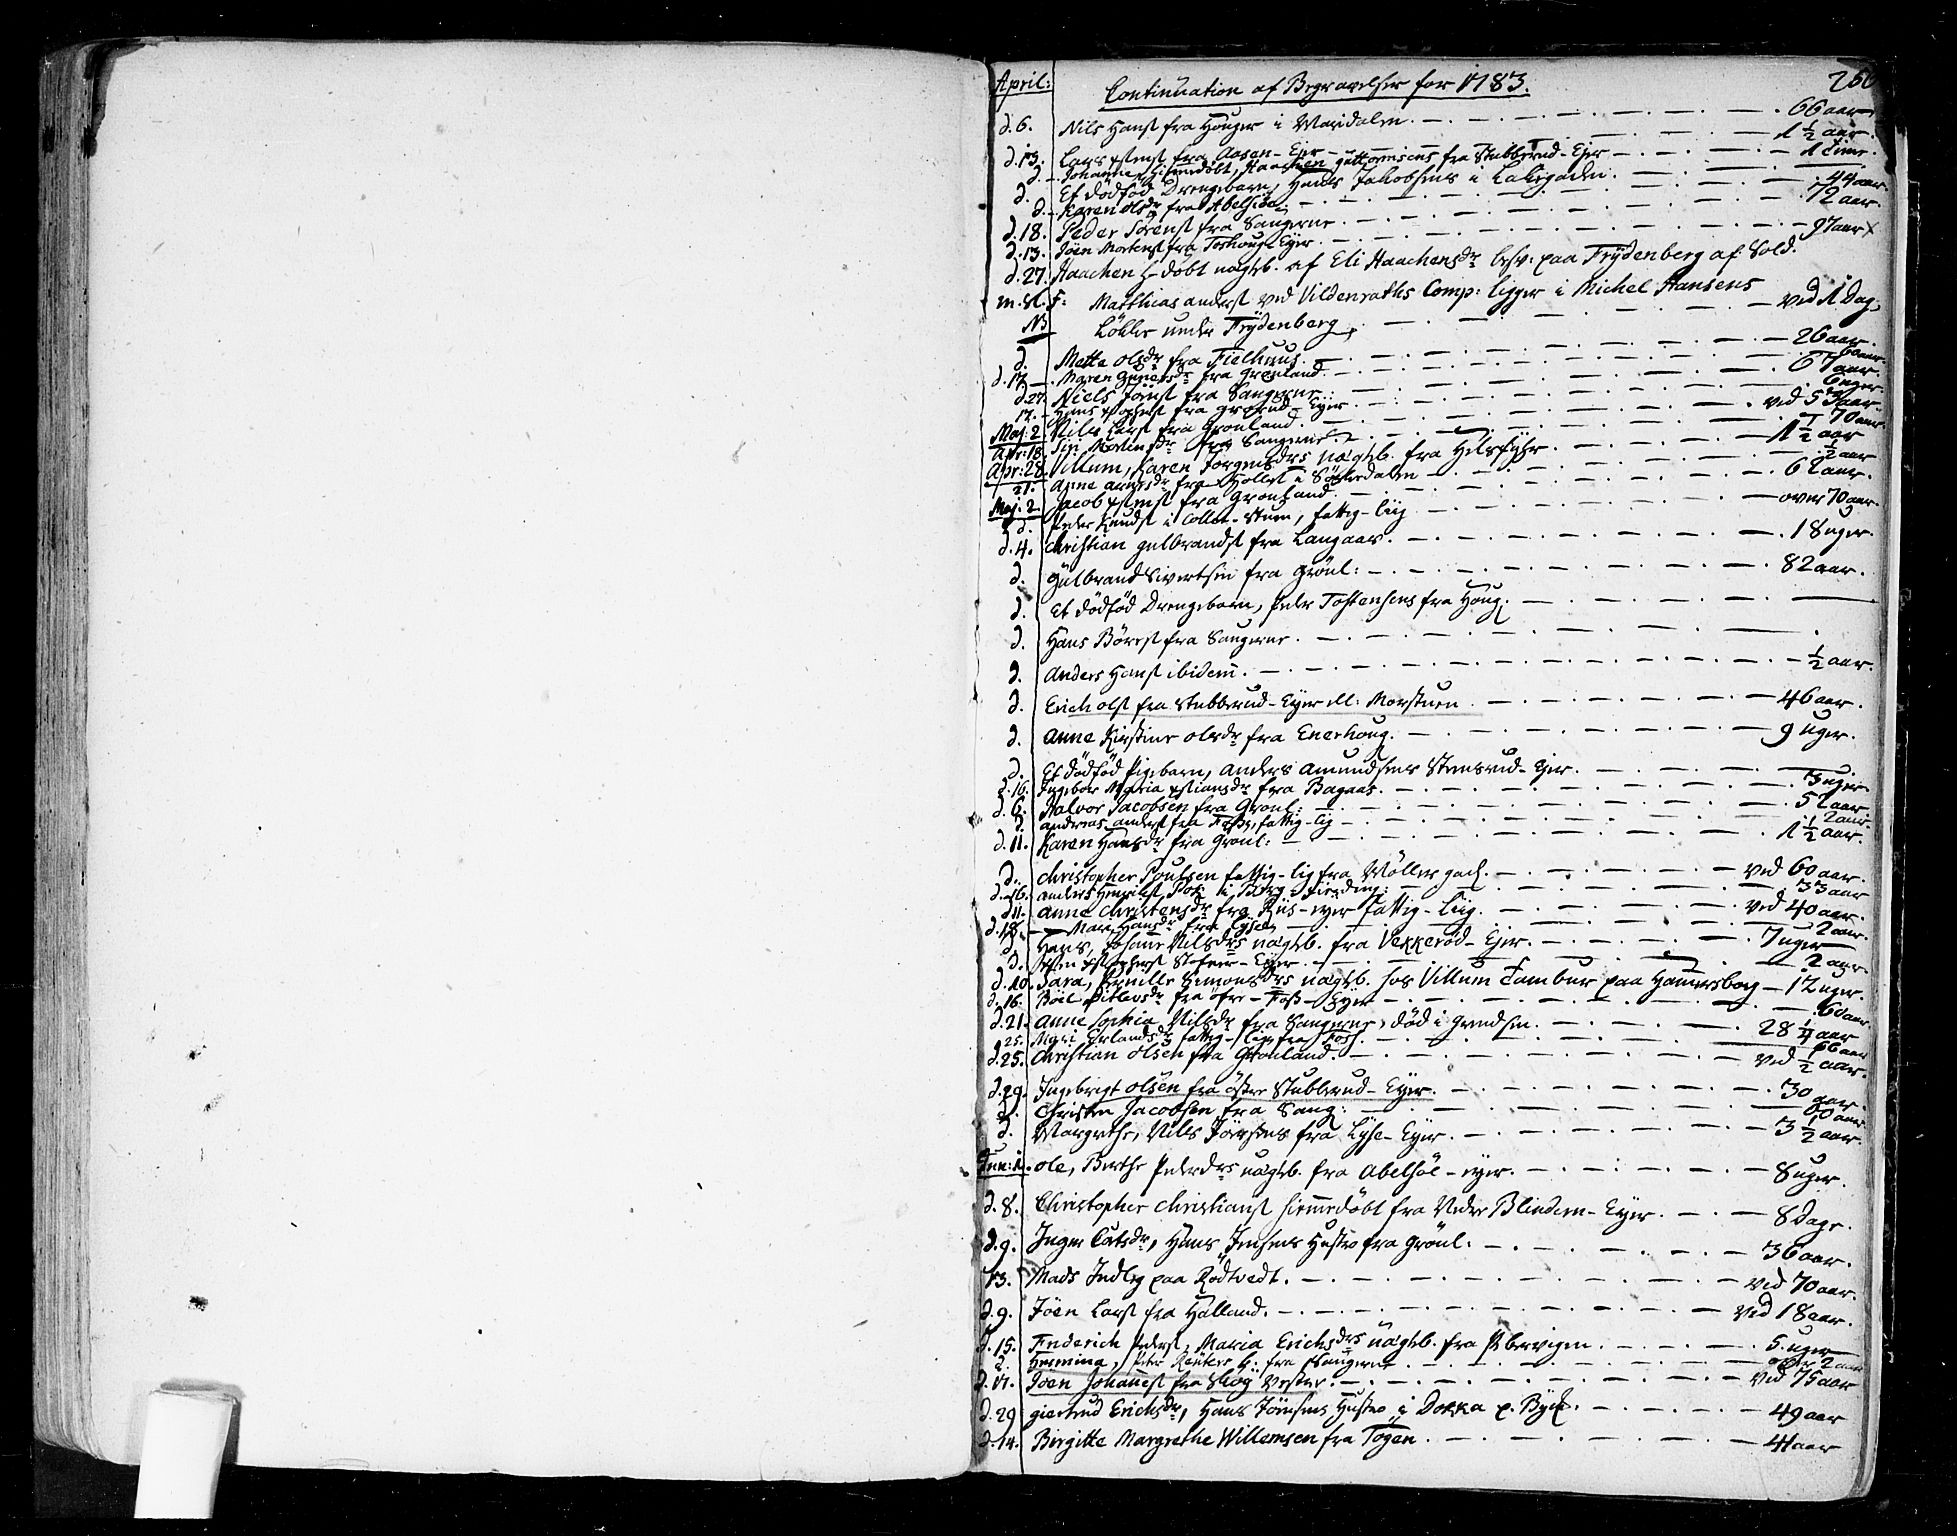 April: Continuation af Begravelser for 1783. 260
d. 6. Nils Hanst fra Houger i Maridalen. 66 aar
1 1/2 aar.
d. 13. Lars xstenst fra Aasen-Eyer
d. Johannes hiemedøbt, Haachen guttormsens fra Stubberud-Ejer 1 time.
d. Et dødfød Drengebarn, Hans Jakobsens i Lakegaden.
d. Karen olsdr fra Abelsiøe. 44 aar.
d. 18. Peder Sørenst fra Saugerne 72 aar.
d. 13. Joen Mortenst fra Torshoug-Eyer. 97 aar x
d. 27. Haachen h-døbt uægteb. af Eli Haachensdr besv: paa Frydenberg af Sold.
m. st. f: Matthias anderst ved Vildenraths Comp: ligger i Michel Hansens
NB Løkke under Frydenberg, ved 1 dag,
d. Mette olsdr fra Fielhuus. 26 aar.
d. 17. Maren gunersdr fra Grønland. 60 aar.
d. 27. Niels Jonst fra Saugerne 67 aar.
17. Hans xstophst fra grorud-Eyer 6 uger
Maj: 2 Niles Larst fra Grønland. ved 53 aar.
Apr: 18 Siri Mortensdr fra Saugerne 70 aar
Apr: 28 Villum, Karen Jørgensdrs uægteb. fra Helsfyhr 1 1/2 aar
21. Anne arnesdr fra Hollet i Sørkedalen 1/2 aar
Maj: 2. Jacob xstenst fra Grønland. 62 aar.
d. Peder Knudst i Collet-stuen, fattig-liig over 70 aar.
d. 4. Christian gulbrandst fra Langaar. 18 uger.
d. Gulbrand Sivertsen fra Grønl: 82 aar.
d. Et dødfød Drengebarn, Peder Tostensens fra Houg.
d. Hans Børest fra Saugerne.
d. Anders Hanst ibidem. 1/2 aar.
d. Erich olst fra Stubberud-Eyer ell: Morstuen 46 aar.
d. Anne Kirstine olsdr fra Enerhoug. 9 uger.
d. Et dødfød Pigebarn, Anders Amundsens Stensrud-Ejer.
d. 16. Ingebor Maria xstiansdr fra Bagaas. 3 uger.
d. 6. Halvor Jacobsen fra Grønl: 52 aar
d. andreas anderst fra Foss, fattig-lig 2 aar.
d. 11. Karen Hansdr fra Grønl: 1 1/2 aar.
d. Christopher Poulsen fattig-lig fra Møllergad. ved 60 aar.
d. 16. anders Henrichst i Borg-Fierding: 33 aar
d. 11. anne Christensdr fra Riis-eyer fattig-liig. ved 40 aar.
d. 18. Mari Hansdr fra Lysel 2 aar.
d. Hans, Johanne Nilsdrs uægteb. fra Vækkerød-Ejer. 7 uger
d. xsten xstophst Stofner-Eyer. 2 aar
d. 10. Sara, Pernille Simonsdrs uægteb. hos Villum Tambur paa Hamersborg 12 uger.
d. 16. Boel Ditlevsdr fra øfre-Foss-Eyer 60 aar
d. 21. Anne Sophia Nilsdr fra Saugerne, død i Grendsen. 28 1/4 aar
25. Mari Erlandsdr fattig-lig fra Foss. 66 aar
d. 25. Christian olsen fra Grønland. ved 1/2 aar.
d. 29. Ingebrigt olsen fra østre Stubberud-Eyer. 30 aar.
d. Christen Jacobsen fra Saug: 60 aar
d. Margrethe, Nills Jørgens fra Lyse-Eyer. 3 1/2 aar.
Jun: 1. ole, Berthe Pedersdrs uægteb. fra Abelsøe-eyer. 8 uger.
d. 8. Christopher Christianst hiemmedøbt fra Nedre Blindern-Eyer. 8 dage.
d. 9. Inger Larsdr, Hans Jensens Hustro fra Grønl. 36 aar.
13. Mads Indlig paa Rødtvedt. ved 70 aar.
d. 9. Joen Larst fra Halland. ved 18 aar.
d. 15. Frederich Pederst, Maria Erichsdrs uægteb. fra Pibervigen 5 uger
d. Hermina, Peter Reuters b: fra Saugerne over 2 aar
d. 17. Joen Johanest fra Skøy vestre. ved 75 aar
d. 29 giertrud Erichsdr, Hans Jonsens Hustro i Dokka p. Bygd. 49 aar
d. 14. Birgitte Margrethe Willemsen fra Tøgen 41 aar